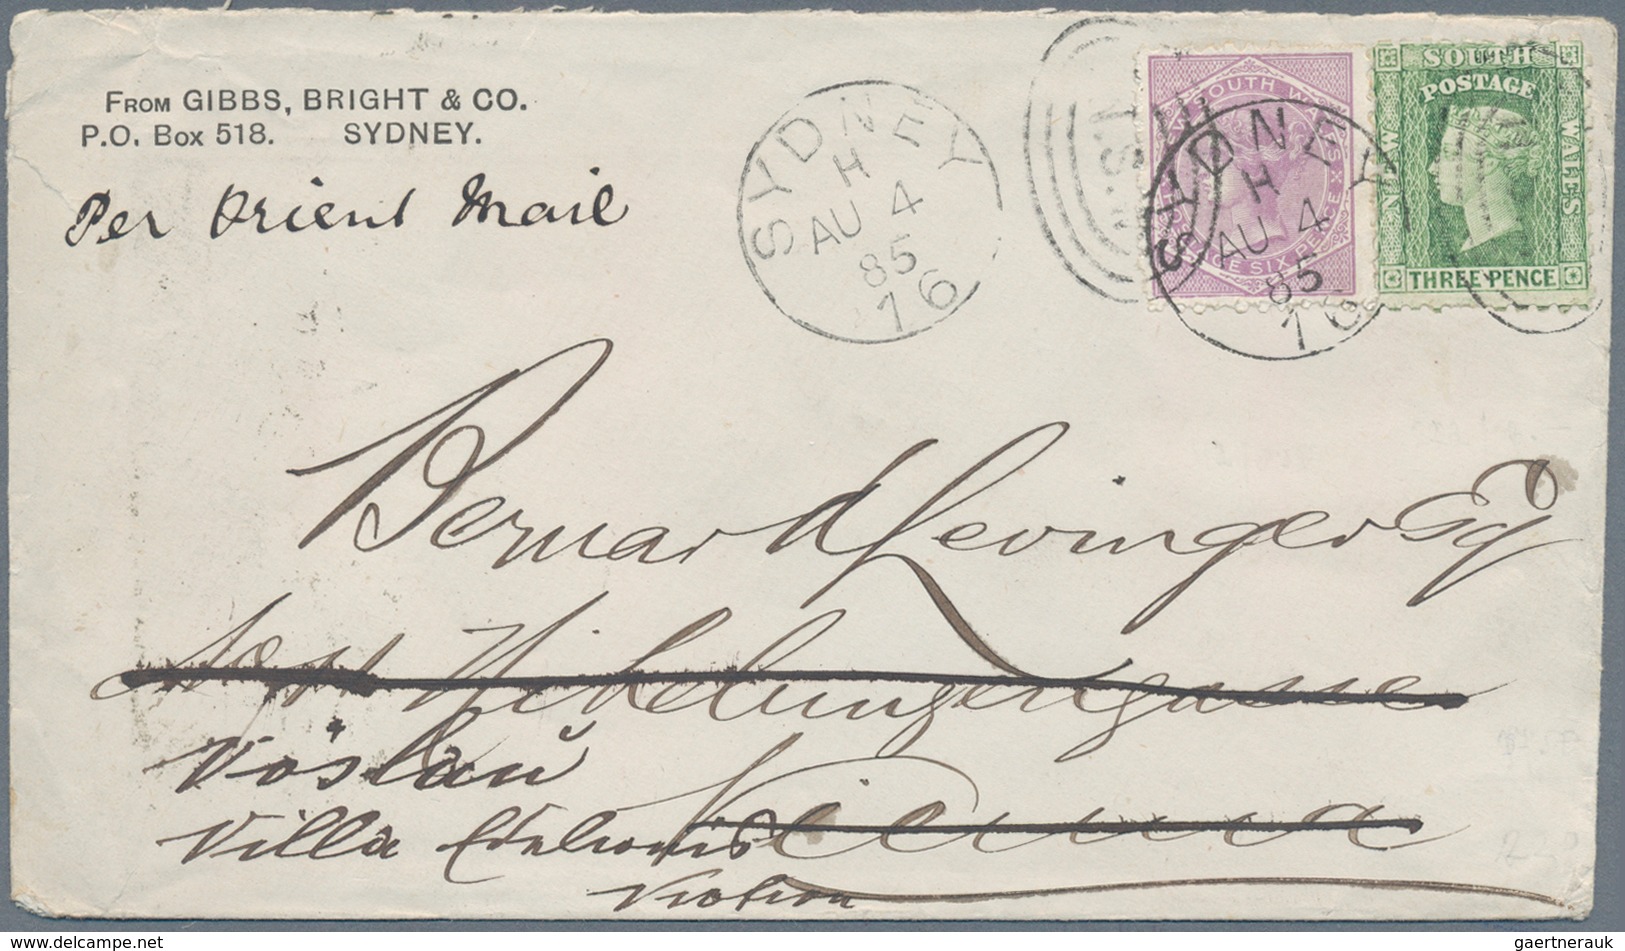 FROM GIBBS, BRIGHT & CO.
P.O. Box 518. SYDNEY.
Per Orient Mail
SYDNEY
H
AU 4
85
16
N.S.W
SOUTH WALES
POSTAGE SIX PENCE
SYDNEY
H
AU 4
85
16
SOUTH
POSTAGE
NEW
WALES
THREE PENCE
Bernard Levinger Esq
Nibelungengasse
Vöslau
Villa
Vienna
gaertnerauk
delcampe.net